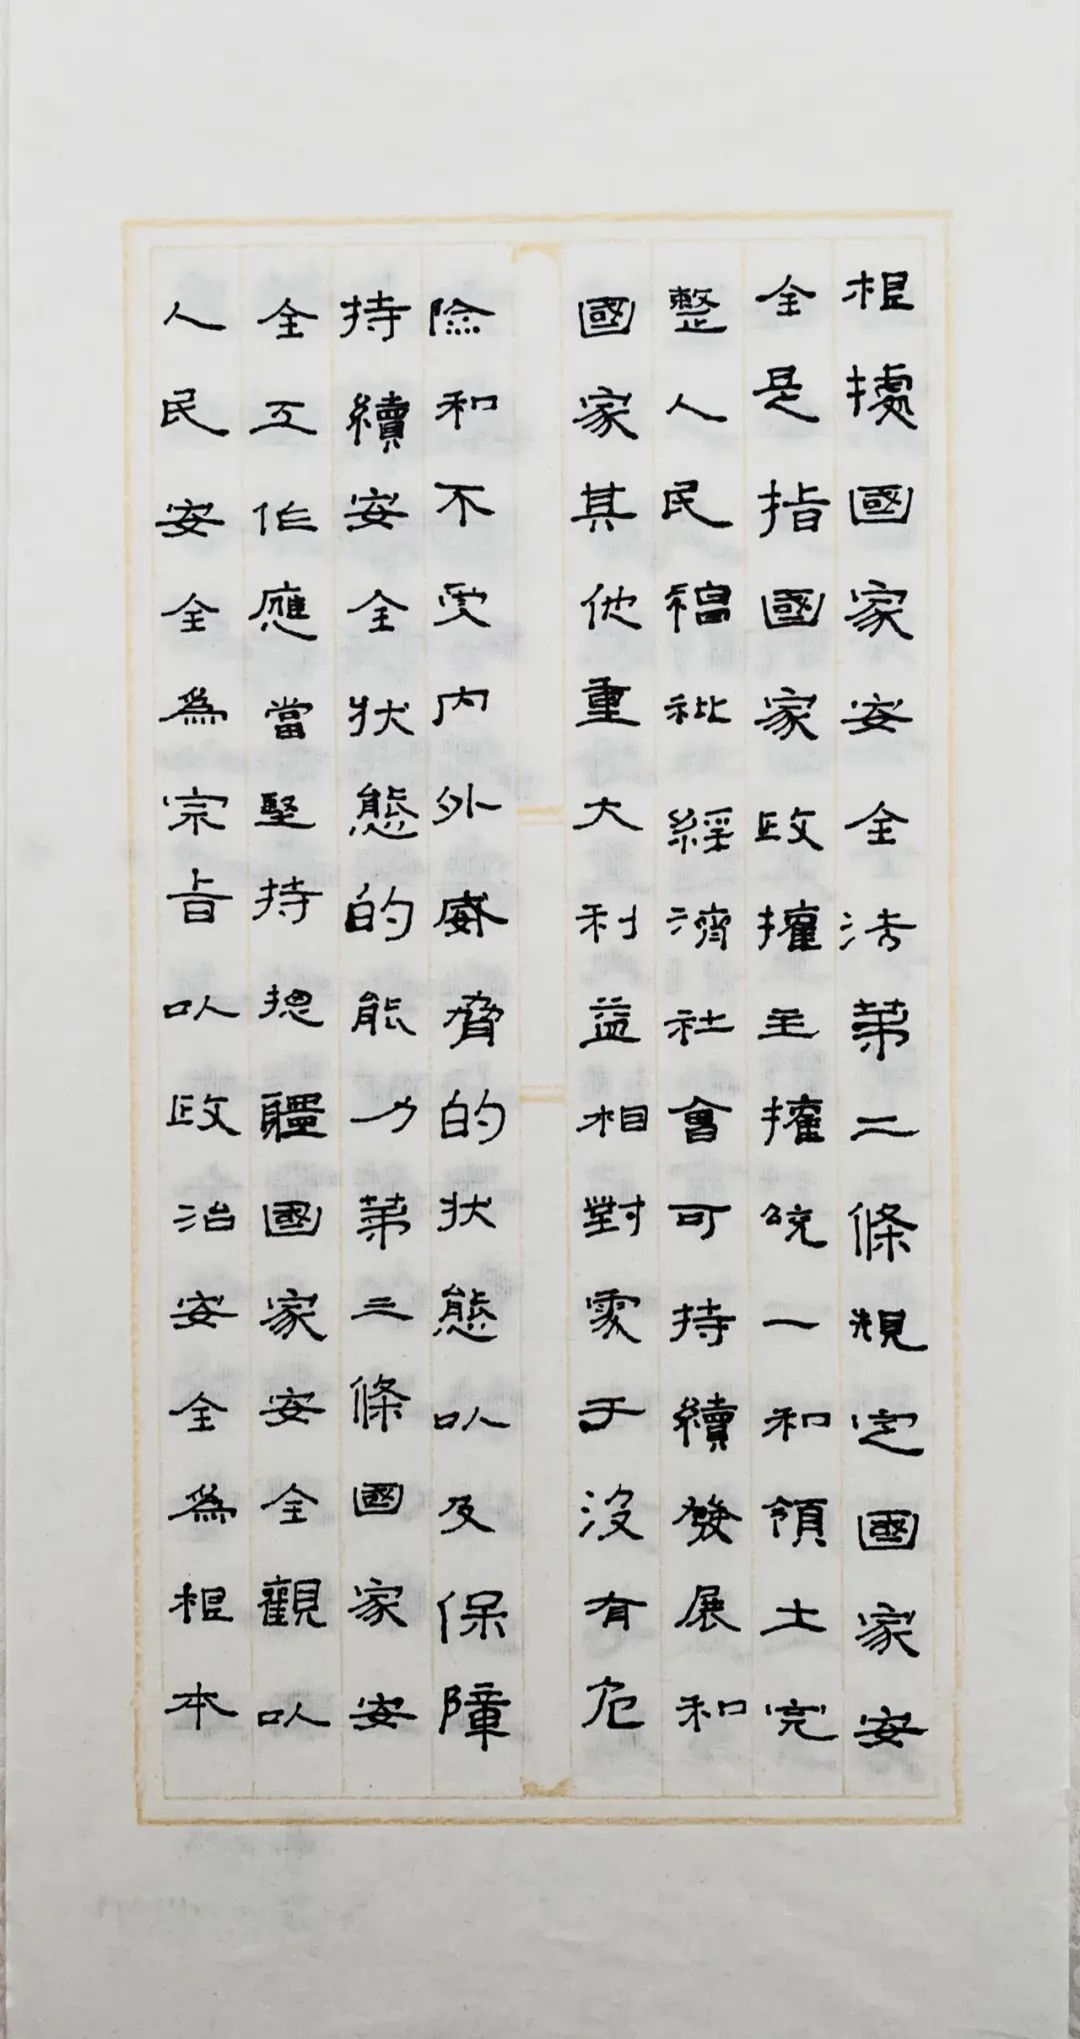 根據國家安全法第二條規定國家安
全是指國家政權主權統一和領土完
整人民福祉經濟社會可持續發展和
國家其他重大利益相對處于没有危
險和不受內外威脅的狀態以及保障
持續安全狀態的能力第三條國家安
全工作應當堅持總疆國家安全觀以
人民安全為宗旨以政治安全為根本